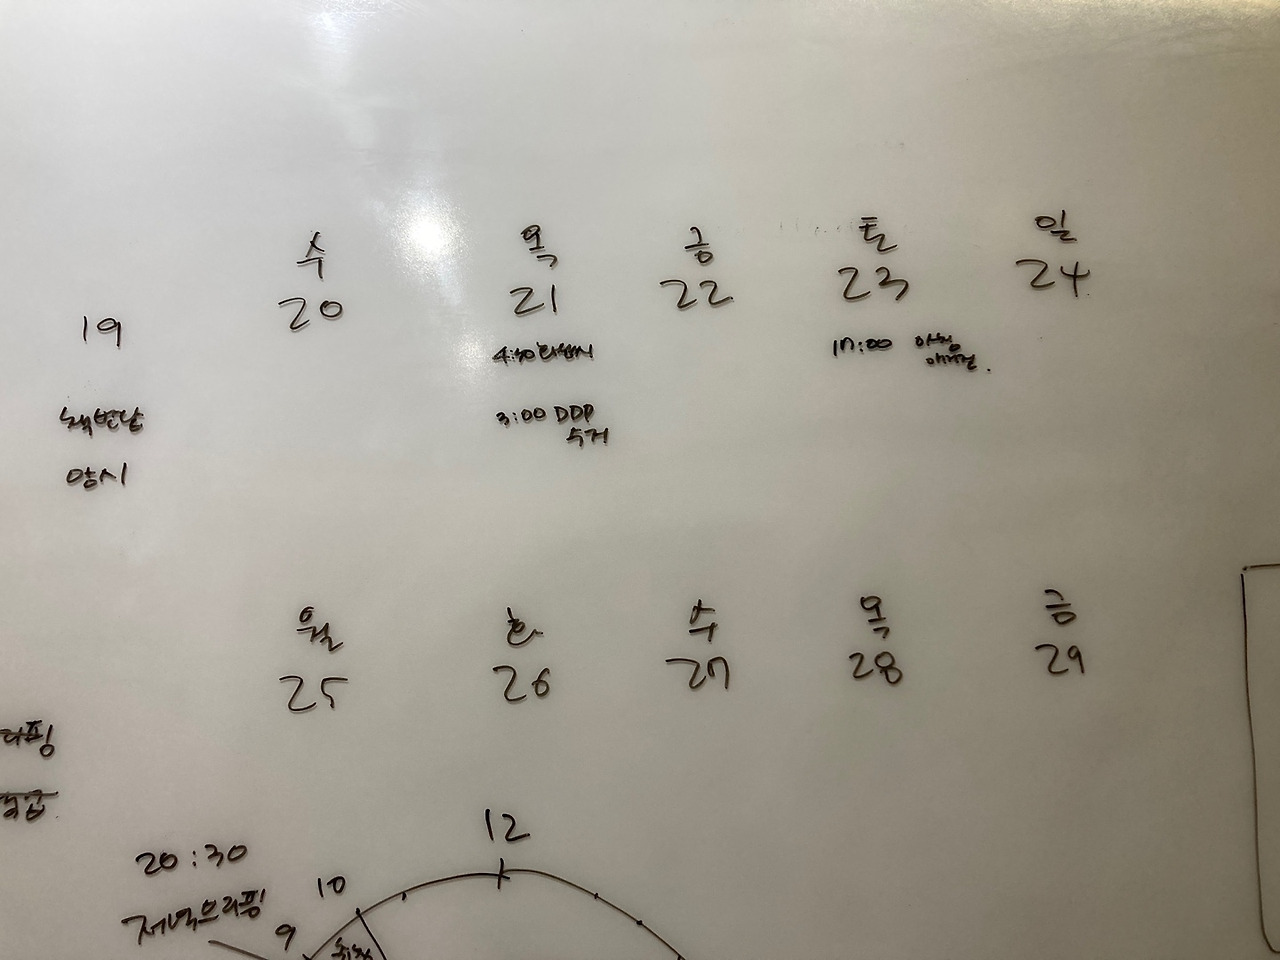 수 목 금 토 일
19 20 21 22 23 24
4:30
17:00
책반납
3:00 DDP
수거
양시
월 화 수 목 금
25 26 27 28 29
리핑
12
20:30
10
저녁브리핑
9
취침